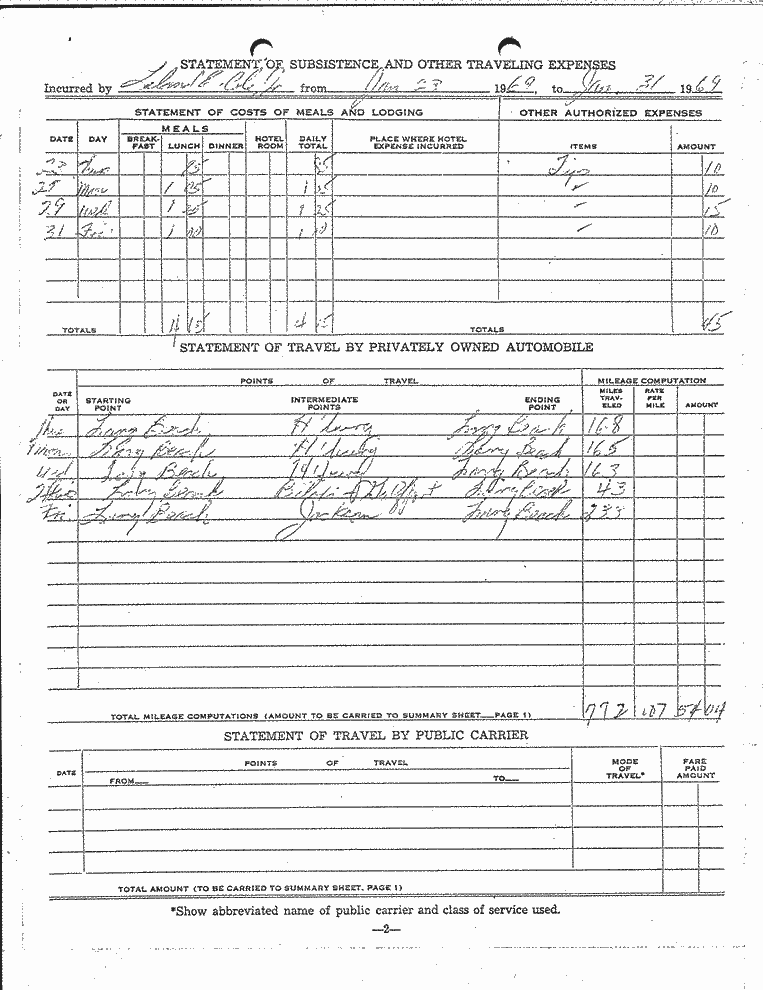 STATEMENT OF SUBSISTENCE AND OTHER TRAVELING EXPENSES
Incurred by Cole, Jr from Jan 23 1969, to Jan. 31 1969
STATEMENT OF COSTS OF MEALS AND LODGING OTHER AUTHORIZED EXPENSES
MEALS
DATE DAY BREAK-FAST LUNCH DINNER HOTEL ROOM DAILY TOTAL PLACE WHERE HOTEL EXPENSE INCURRED ITEMS AMOUNT
23 Tips 10
Mon 1 25 1 25 " 10
29 Wed 1 25 1 25 " 15
31 Fri 1 10 1 10 " 10
TOTALS 4 15 4 15 TOTALS 45
STATEMENT OF TRAVEL BY PRIVATELY OWNED AUTOMOBILE
POINTS OF TRAVEL MILEAGE COMPUTATION
DATE OR DAY STARTING POINT INTERMEDIATE POINTS ENDING POINT MILES TRAV-ELED RATE PER MILE AMOUNT
Thu Long Beach Long Beach 168
Mon Long Beach Long Beach 165
Wed Long Beach Long Beach 163
Long Beach Biloxi Long Beach 43
Fri Long Beach Jackson Long Beach 233
TOTAL MILEAGE COMPUTATIONS (AMOUNT TO BE CARRIED TO SUMMARY SHEET—PAGE 1) 772 .07 54 04
STATEMENT OF TRAVEL BY PUBLIC CARRIER
DATE POINTS OF TRAVEL MODE OF TRAVEL* FARE PAID AMOUNT
FROM— TO—
TOTAL AMOUNT (TO BE CARRIED TO SUMMARY SHEET, PAGE 1)
*Show abbreviated name of public carrier and class of service used.
—2—